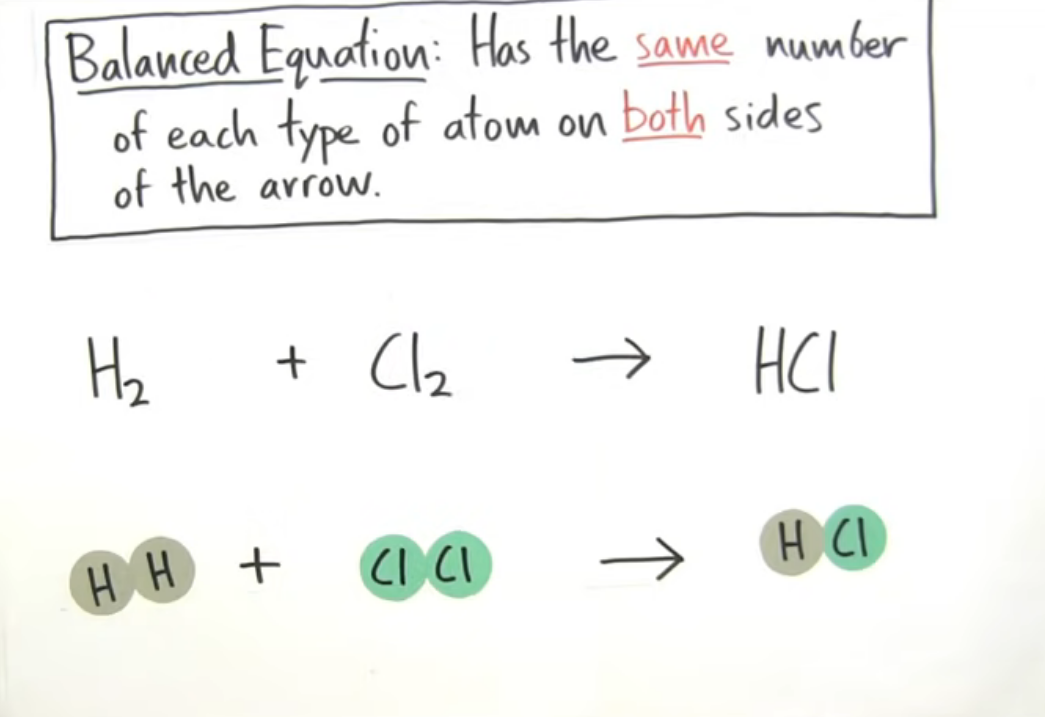 Balanced Equation: Has the same number
of each type of atom on both sides
of the arrow.
H₂ + Cl₂ → HCl
H H + Cl Cl → H Cl